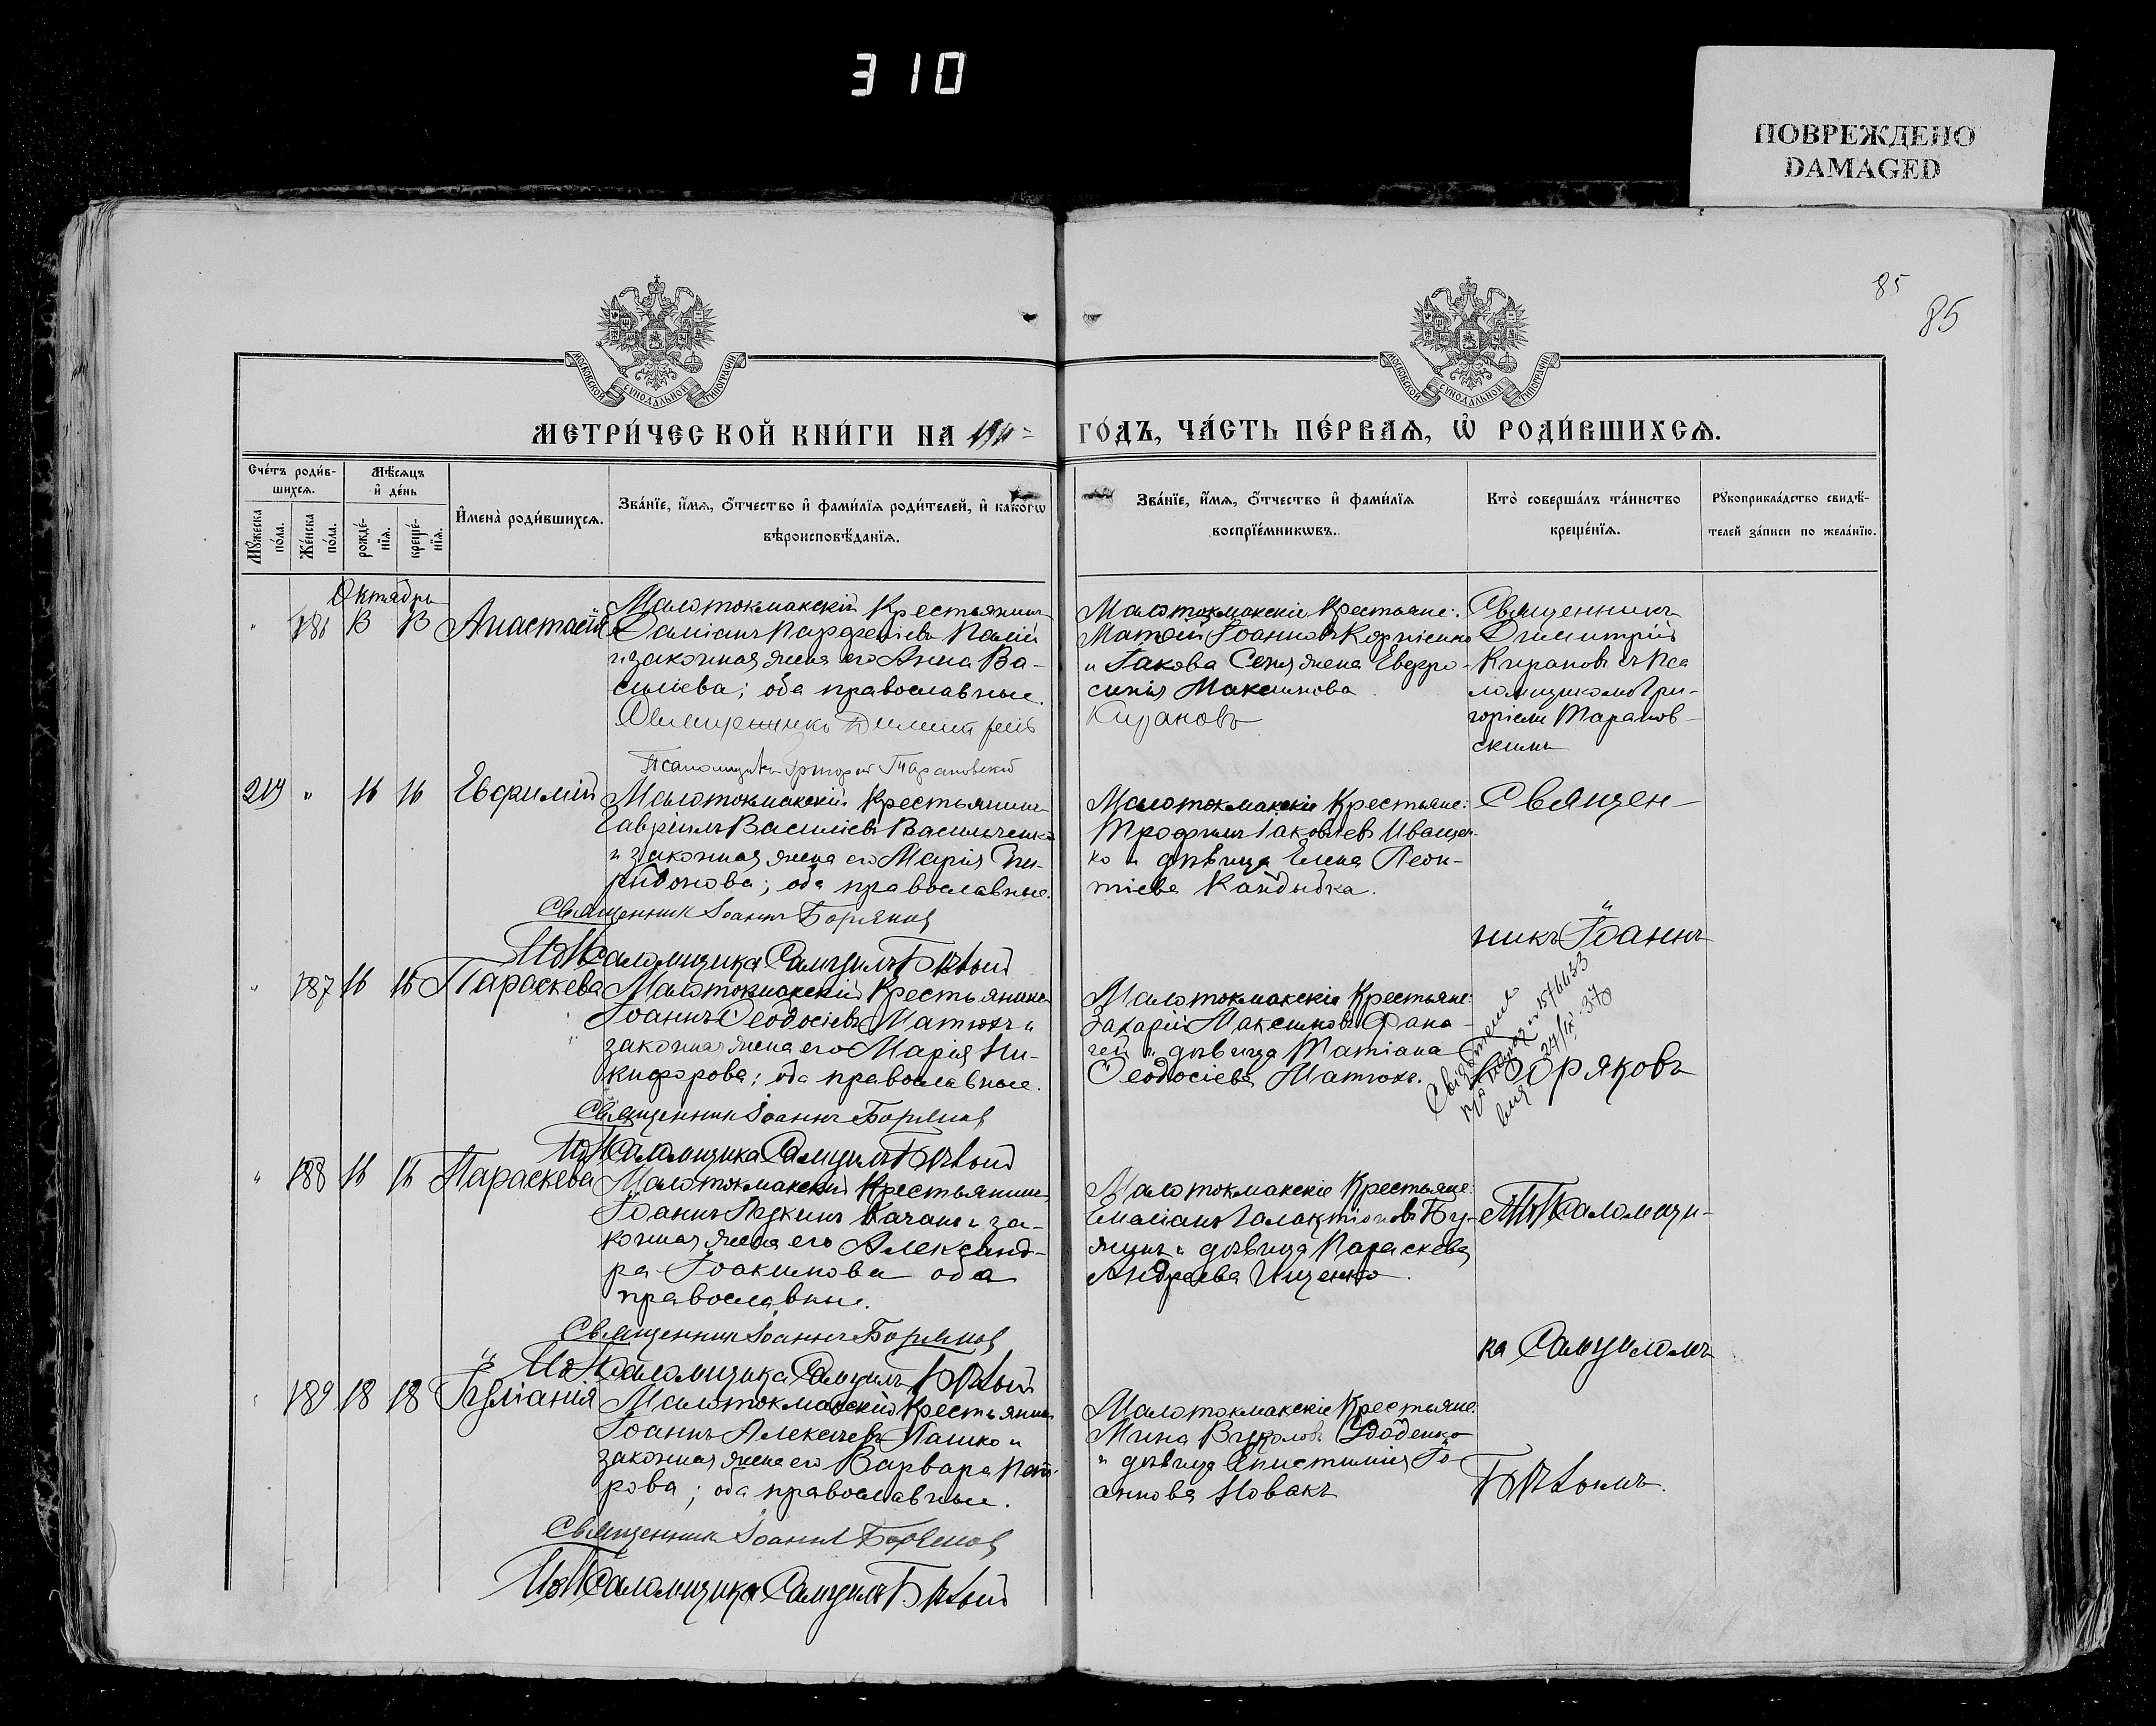 310
ПОВРЕЖДЕНО
DAMAGED
85
85
МОСКОВСКОЙ СѴНОДАЛЬНОЙ ТИПОГРАФІИ
МОСКОВСКОЙ СѴНОДАЛЬНОЙ ТИПОГРАФІИ
МЕТРИ́ЧЕСКОЙ КНИ́ГИ НА
ГО́ДЪ, ЧА́СТЬ ПЕ́РВАѦ, Ѡ҆ РОДИ́ВШИХСѦ.
Сче́тъ роди́в-
шихсѧ.
Мѣ́сѧцъ
и҆ де́нь
Мꙋ́жеска
по́ла.
Же́нска
по́ла.
рожде́-
нїѧ.
креще́-
нїѧ.
И҆мена̀ роди́вшихсѧ.
Зва́нїе, и҆́мѧ, ѻ҆́тчество и҆ фами́лїѧ роди́телей, и҆ како́гѡ
вѣроисповѣ́данїѧ.
Зва́нїе, и҆́мѧ, ѻ҆́тчество и҆ фами́лїѧ
воспрїе́мникѡвъ.
Кто̀ соверша́лъ та́инство
креще́нїѧ.
Рꙋкоприкла́дство свидѣ́-
телей за́писи по жела́нїю.
Октябрь
" 186 13 13 Анастасія
Малотокмакскій Крестьянинъ
Даміанъ Парфеніевъ Палій
и законная жена его Анна Ва-
силіева; оба православные.
Священникъ Димитрій
Кирановъ
Псаломщикъ Григорій Тарановскій
Малотокмакскіе Крестьяне:
Матѳей Іоанновъ Корніенко
и Іакова Сеня жена Евфро-
синія Максимова.
Священникъ
Димитрій
Кирановъ съ Пса
ломщикомъ Гри-
горіемъ Таранов-
скимъ
219 " 16 16 Евфимій
Малотокмакскій Крестьянинъ
Гавріилъ Василіевъ Васильченко
и законная жена его Марія Спи-
ридонова; оба православные.
Священникъ Іоаннъ Боряковъ
И д Псаломщика Самуилъ Бѣлый
Малотокмакскіе Крестьяне:
Трофимъ Іаковлевъ Иващен-
ко и дѣвица Елена Леон-
тіева Кандыбка.
Священ-
никъ Іоаннъ
" 187 16 16 Параскева
Малотокмакскій Крестьянинъ
Іоаннъ Ѳеодосіевъ Матюхъ и
законная жена его Марія Ни-
кифорова; оба православные.
Священникъ Іоаннъ Боряковъ
И д Псаломщика Самуилъ Бѣлый
Малотокмакскіе Крестьяне:
Захарій Максимовъ Фана-
гей и дѣвица Татіана
Ѳеодосіева Матюхъ.
24/IX-370
Боряковъ
" 188 16 16 Параскева
Малотокмакскій Крестьянинъ
Іоаннъ Лукинъ Качанъ и за-
конная жена его Александ-
ра Іоакимова оба
православные.
Священникъ Іоаннъ Боряковъ
И д Псаломщика Самуилъ Бѣлый
Малотокмакскіе Крестьяне:
Емаліанъ Галактіоновъ
и дѣвица Параскева
Андреева Ищенко.
Псаломщи-
ка Самуиломъ
" 189 18 18 Іуліанія
Малотокмакскій Крестьянинъ
Іоаннъ Алексіевъ Пашко и
законная жена его Варвара Пет-
рова; оба православные.
Священникъ Іоаннъ Боряковъ
И д Псаломщика Самуилъ Бѣлый
Малотокмакскіе Крестьяне:
Мина Вуколовъ Удоденко
и дѣвица Епистимія Іо-
аннова Новакъ
Бѣлымъ.